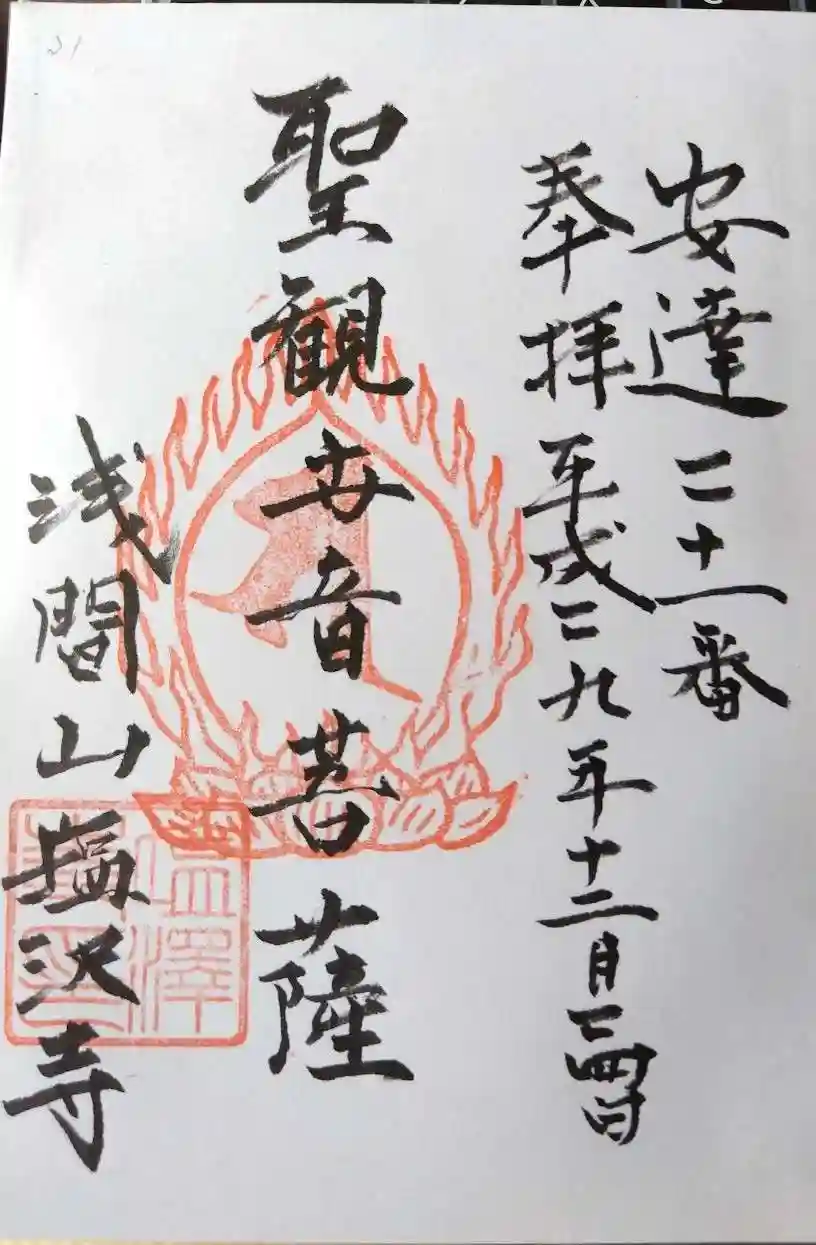 安達二十一番
奉拝 平成二九年十二月二四日
聖観世音菩薩
浅間山塩沢寺
21